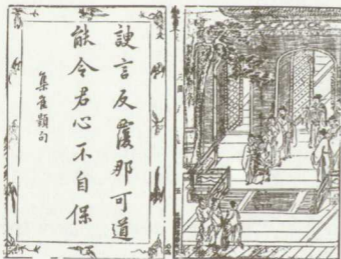 諛言反覆那可道
能令君心不自保
集崔顥句